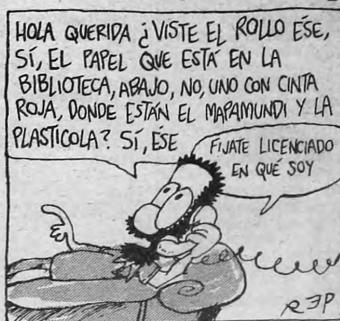 HOLA QUERIDA ¿VISTE EL ROLLO ÉSE,
SÍ, EL PAPEL QUE ESTÁ EN LA
BIBLIOTECA, ABAJO, NO, UNO CON CINTA
ROJA, DONDE ESTÁN EL MAPAMUNDI Y LA
PLASTICOLA? SÍ, ÉSE
FIJATE LICENCIADO
EN QUÉ SOY
REP